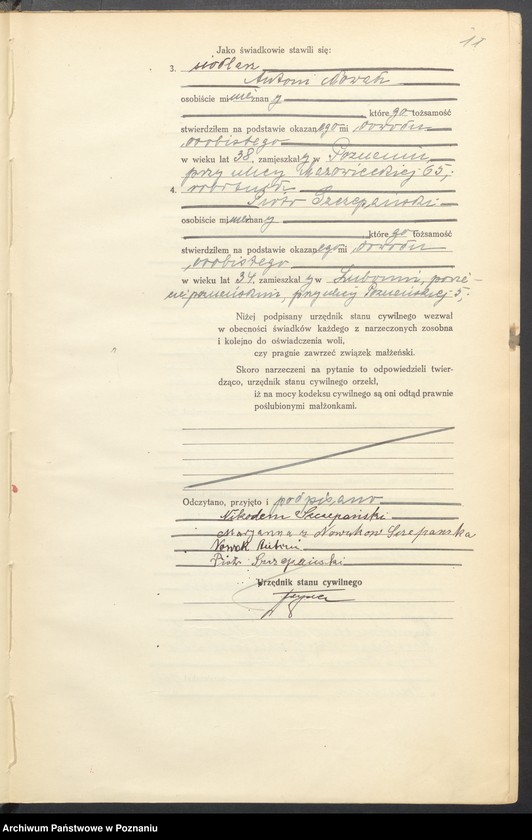 11
Jako świadkowie stawili się:
3. siodlarz
Antoni Nowak
osobiście mi nie znany
którego tożsamość
stwierdziłem na podstawie okazanego mi dowodu
osobistego
w wieku lat 38, zamieszkały w Poznaniu
przy ulicy Mazowieckiej 65;
4. robotnik
Piotr Szczepański
osobiście mi nie znany
którego tożsamość
stwierdziłem na podstawie okazanego mi dowodu
osobistego
w wieku lat 34, zamieszkały w Luboniu, powie-
cie poznańskim, przy ulicy Poznańskiej 5;
Niżej podpisany urzędnik stanu cywilnego wezwał
w obecności świadków każdego z narzeczonych zosobna
i kolejno do oświadczenia woli,
czy pragnie zawrzeć związek małżeński.
Skoro narzeczeni na pytanie to odpowiedzieli twier-
dząco, urzędnik stanu cywilnego orzekł,
iż na mocy kodeksu cywilnego są oni odtąd prawnie
poślubionymi małżonkami.
Odczytano, przyjęto i podpisano
Nikodem Szczepański
Marjanna z Nowaków Szczepańska
Nowak Antoni
Piotr Szczepański
Urzędnik stanu cywilnego
Archiwum Państwowe w Poznaniu